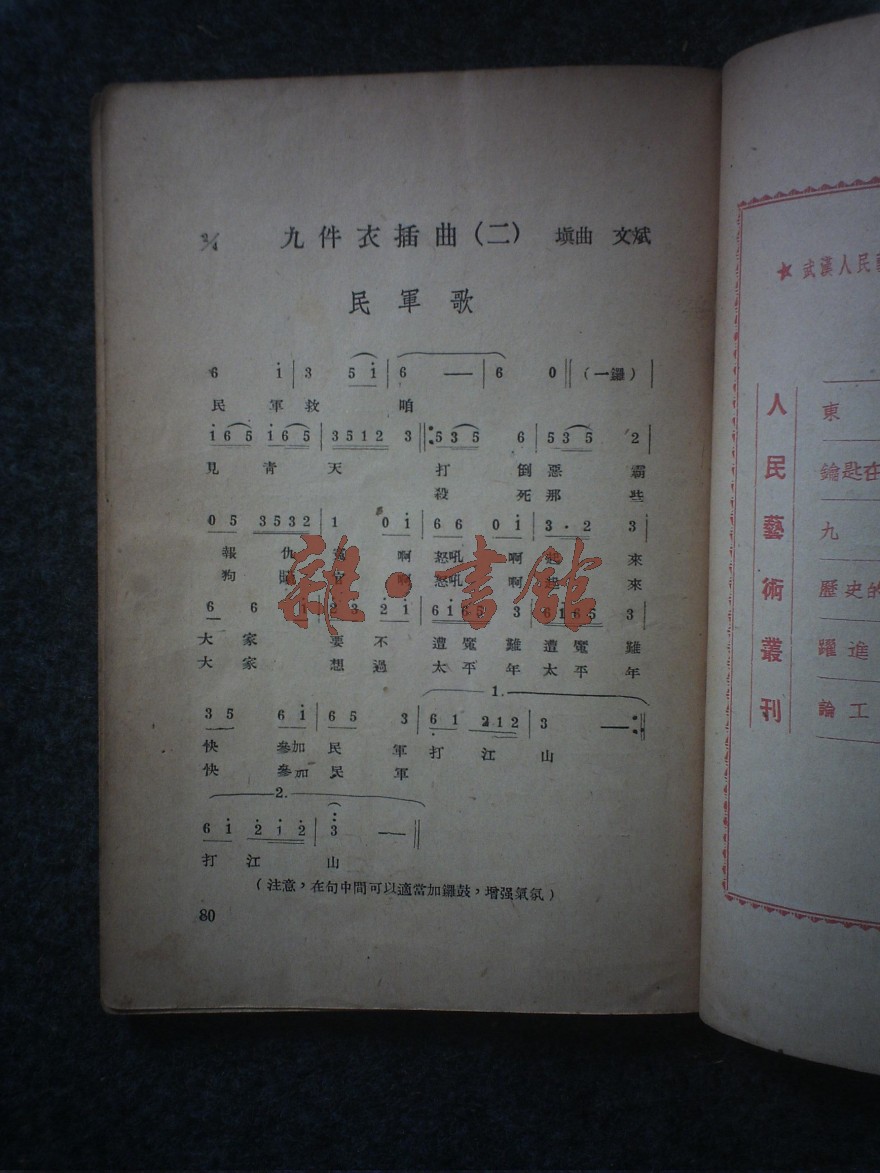 2/4 九件衣插曲(二) 塡曲 文斌
民軍歌
6 i | 3 5 i | 6 — | 6 0 ‖ (一鑼) |
民 軍 救 咱
i 6 5 i 6 5 | 3 5 1 2 3 ‖: 5 3 5 6 | 5 3 5 2 |
見 青 天 打 倒 惡 霸
殺 死 那 些
0 5 3 5 3 2 | 1 0 i | 6 6 0 i | 3 · 2 3 |
報 仇 啊 怒吼 啊 起 來
狗 啊 怒吼 啊 起 來
6 6 i | 2 3 2 i | 6 i 6 5 3 | 6 i 6 5 3 |
大 家 要 不 遭 魔 難 遭 魔 難
大 家 想 過 太 平 年 太 平 年
1.
3 5 6 i | 6 5 3 | 6 1 2 1 2 | 3 — :‖
快 參加 民 軍 打 江 山
快 參加 民 軍
2.
6 i 2 i 2 | 3 — ‖
打 江 山
(注意,在句中間可以適當加鑼鼓,增强氣氛)
80
雜·書館
★ 武漢人民藝
人民藝術叢刊
東
鑰匙在
九
歷史的
躍進
論工